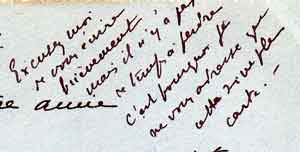 Excusez moi
de vous écrire
brièvement
mais il n'y a pas
de temps à perdre
c'est pourquoi je
ne vous adresse que
cette simple
carte. —